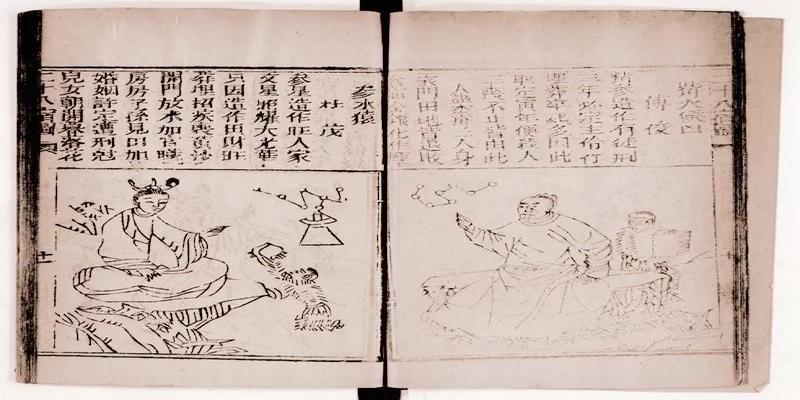 二十八宿圖
觜火猴凶
傅俊
造作有徒刑
三年必定主伶仃
埋葬卒死多因此
取定寅年便殺人
三喪不止皆由此
一人藥毒二人身
家門田地皆退敗
金銀化作塵
參水猿
杜茂
參星造作旺人家
文星照耀大光華
只因造作田財旺
葬埋招疾喪黃沙
開門放水加官職
房房子孫見田加
婚姻許定遭刑剋
兒女朝開暮落花
二十八宿圖